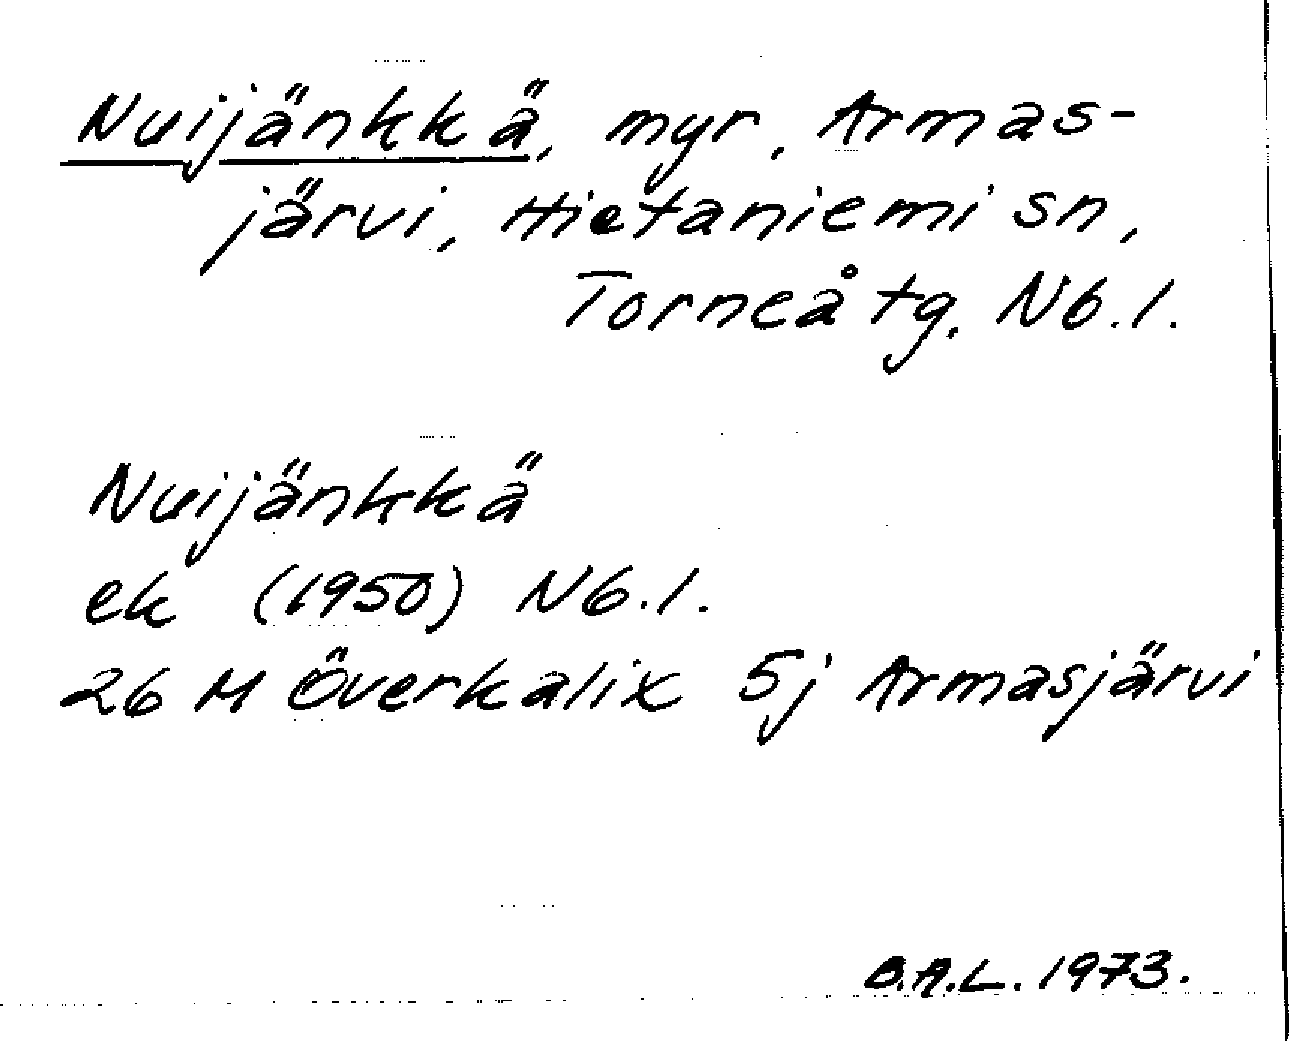 Nuijänkkä, myr, Armas-
järvi, Hietaniemi sn,
Torneå tg. Nb.l.
Nuijänkkä
ek (1950) Nb.l.
26 M Överkalix 5j Armasjärvi
B.A.L. 1973.